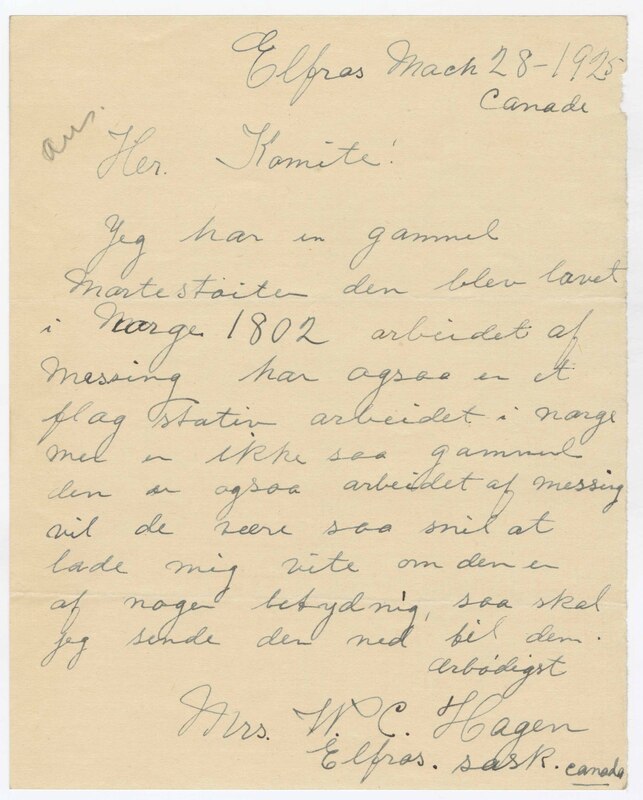 Elfros Mach 28-1925
Canade
ans.
Her. Komite!
Jeg har en gammel
Mortestøiter den blev lavet
i Norge 1802 arbeidet af
Messing har ogsaa en et
flag stativ arbeidet i norge
men er ikke saa gammel
den er ogsaa arbeidet af messing
vil de være saa snil at
lade mig vite om den er
af nogen betydnig, saa skal
jeg sende den ned til dem.
Ærbødigst
Mrs. W. C. Hagen
Elfros. sask. canada